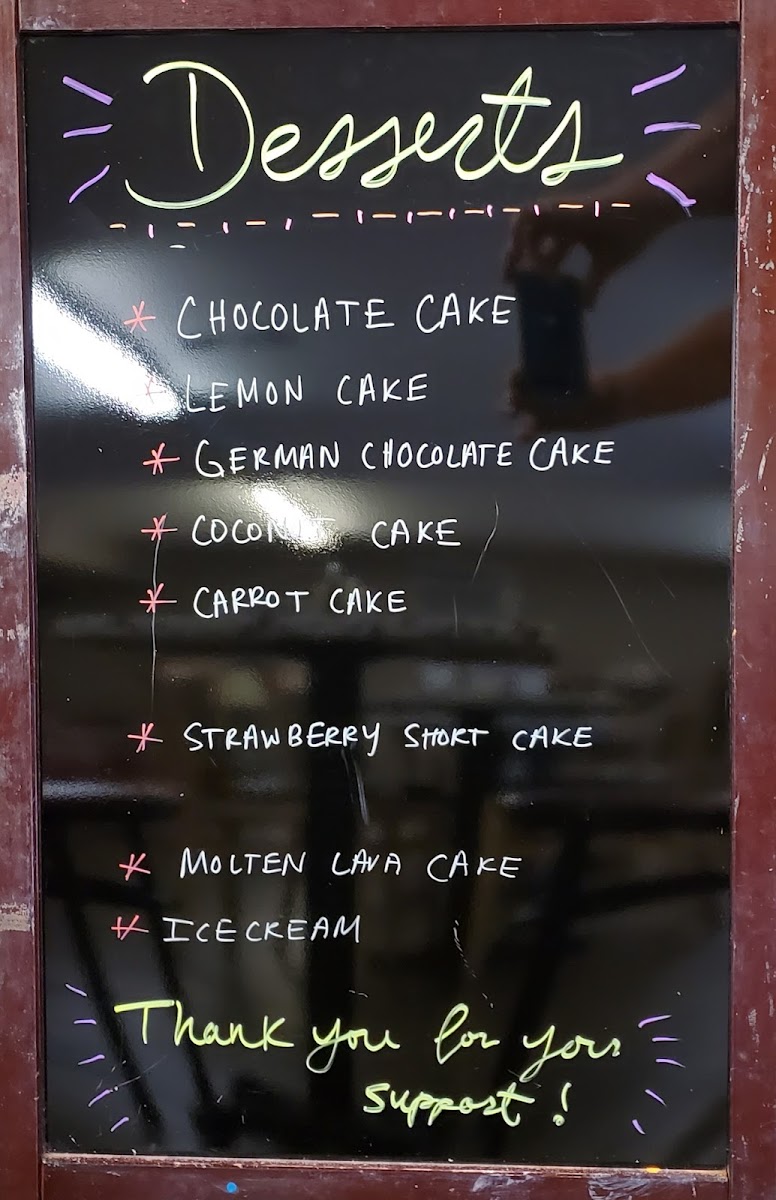 Desserts
* CHOCOLATE CAKE
* LEMON CAKE
* GERMAN CHOCOLATE CAKE
* COCONUT CAKE
* CARROT CAKE
* STRAWBERRY SHORT CAKE
* MOLTEN LAVA CAKE
* ICECREAM
Thank you for your
support!